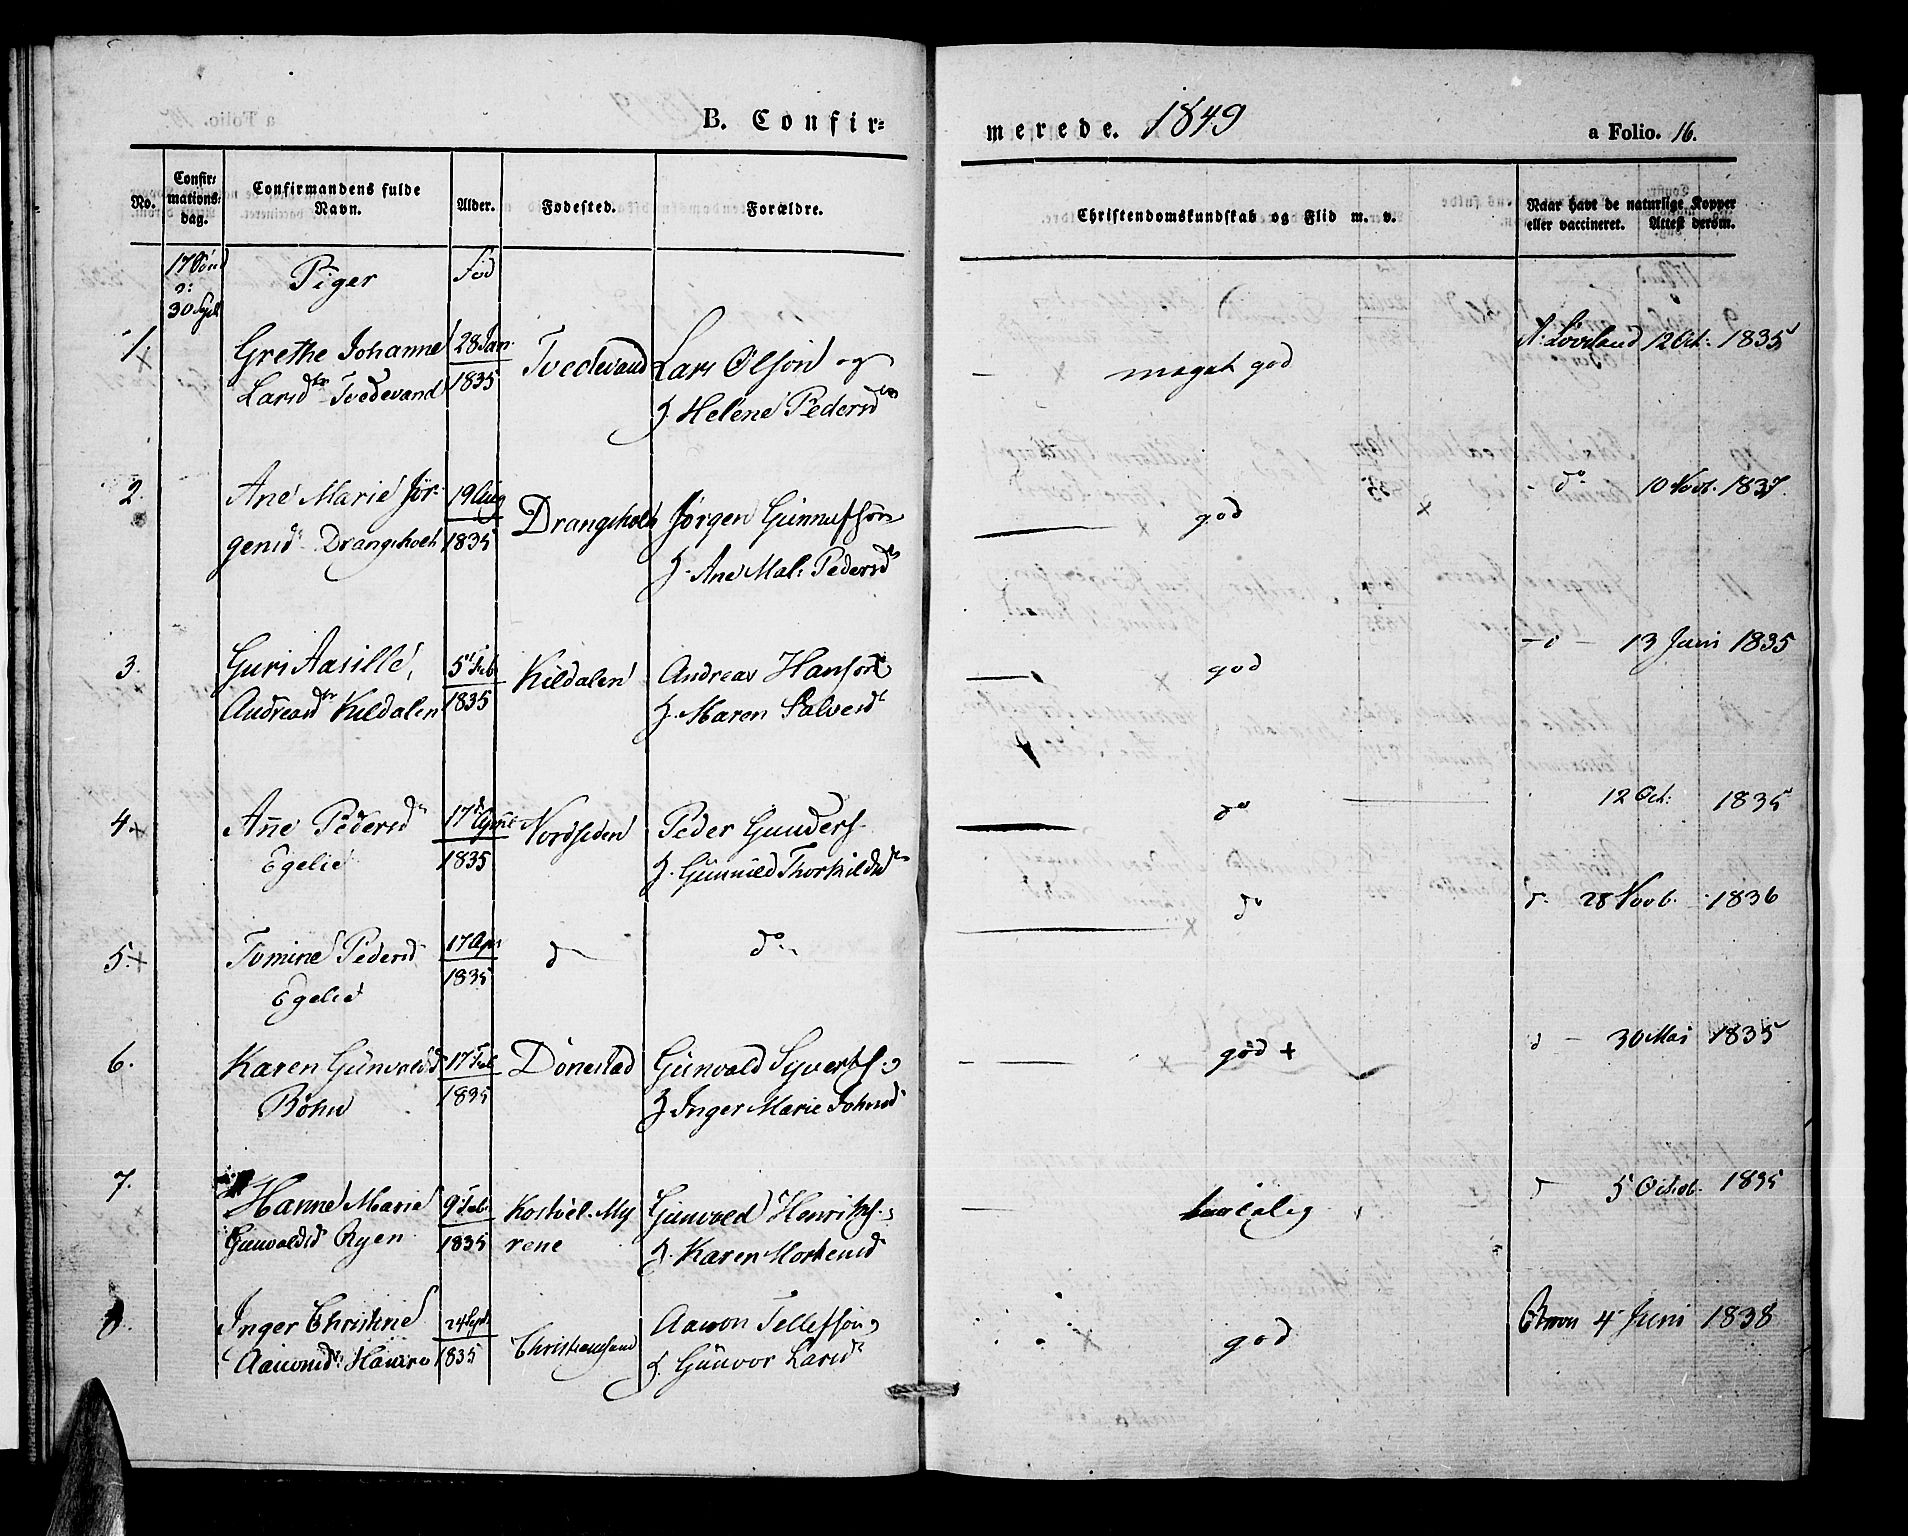 B. Confir=
merede. 1849
a Folio. 16.
No.
Confir=
mations=
dag.
Confirmandens fulde
Navn.
Alder.
Fødested.
Forældre.
Christendomskundskab og Flid m. v.
Naar havt de naturlige Kopper
eller vaccineret. Attest derom.
17 Sønd
ɔ:
30 Sept
Piger
Fød
1.
Grethe Johanne
Larsdtr Tvedevand
28 Jan.
1835
Tvedevand
Lars Olson og
H. Helene Pedersdtr
meget god
A. Løvsland 12 Oct. 1835
2.
Ane Marie Jør-
gensd. Drangsholt
19 Aug
1835
Drangsholt
Jørgen Gunnufsøn
H. Ane Mal: Pedersd
god
do 10 Novb. 1837.
3.
Guri Aasille,
Andreasdtr Kildalen
5 Feb
1835
Kildalen
Andreas Hanson
H. Maren Salvesd
god
13 Juni 1835
4.
Ane Pedersd
Egelie
17 April
1835
Nordsiden
Peder Gunders.
H. Gunnild Thorkildsd
do
12 Oct: 1835
5.
Tomine Pedersd
Egelie
17 Apr
1835
d
do
do
d. 28 Novb. 1836
6.
Karen Gunvaldsd
Bøhn
17 Feb
1835
Dønestad
Gunvald Syverts.
H. Inger Marie Johnsd
god +
d 30 Mai 1835
7.
Hanne Marie
Gunvaldsd Ryen
9 Feb.
1835
Kostøl. My
rene
Gunvald Henriks.
H. Karen Mortensd
taalelig
d 5 Octob. 1835
8.
Inger Christine
Aanonsd.
24 Sept
1835
Christiansand
Aanon Tellefsøn
H. Gunvor Larsd
god
4 Juni 1838